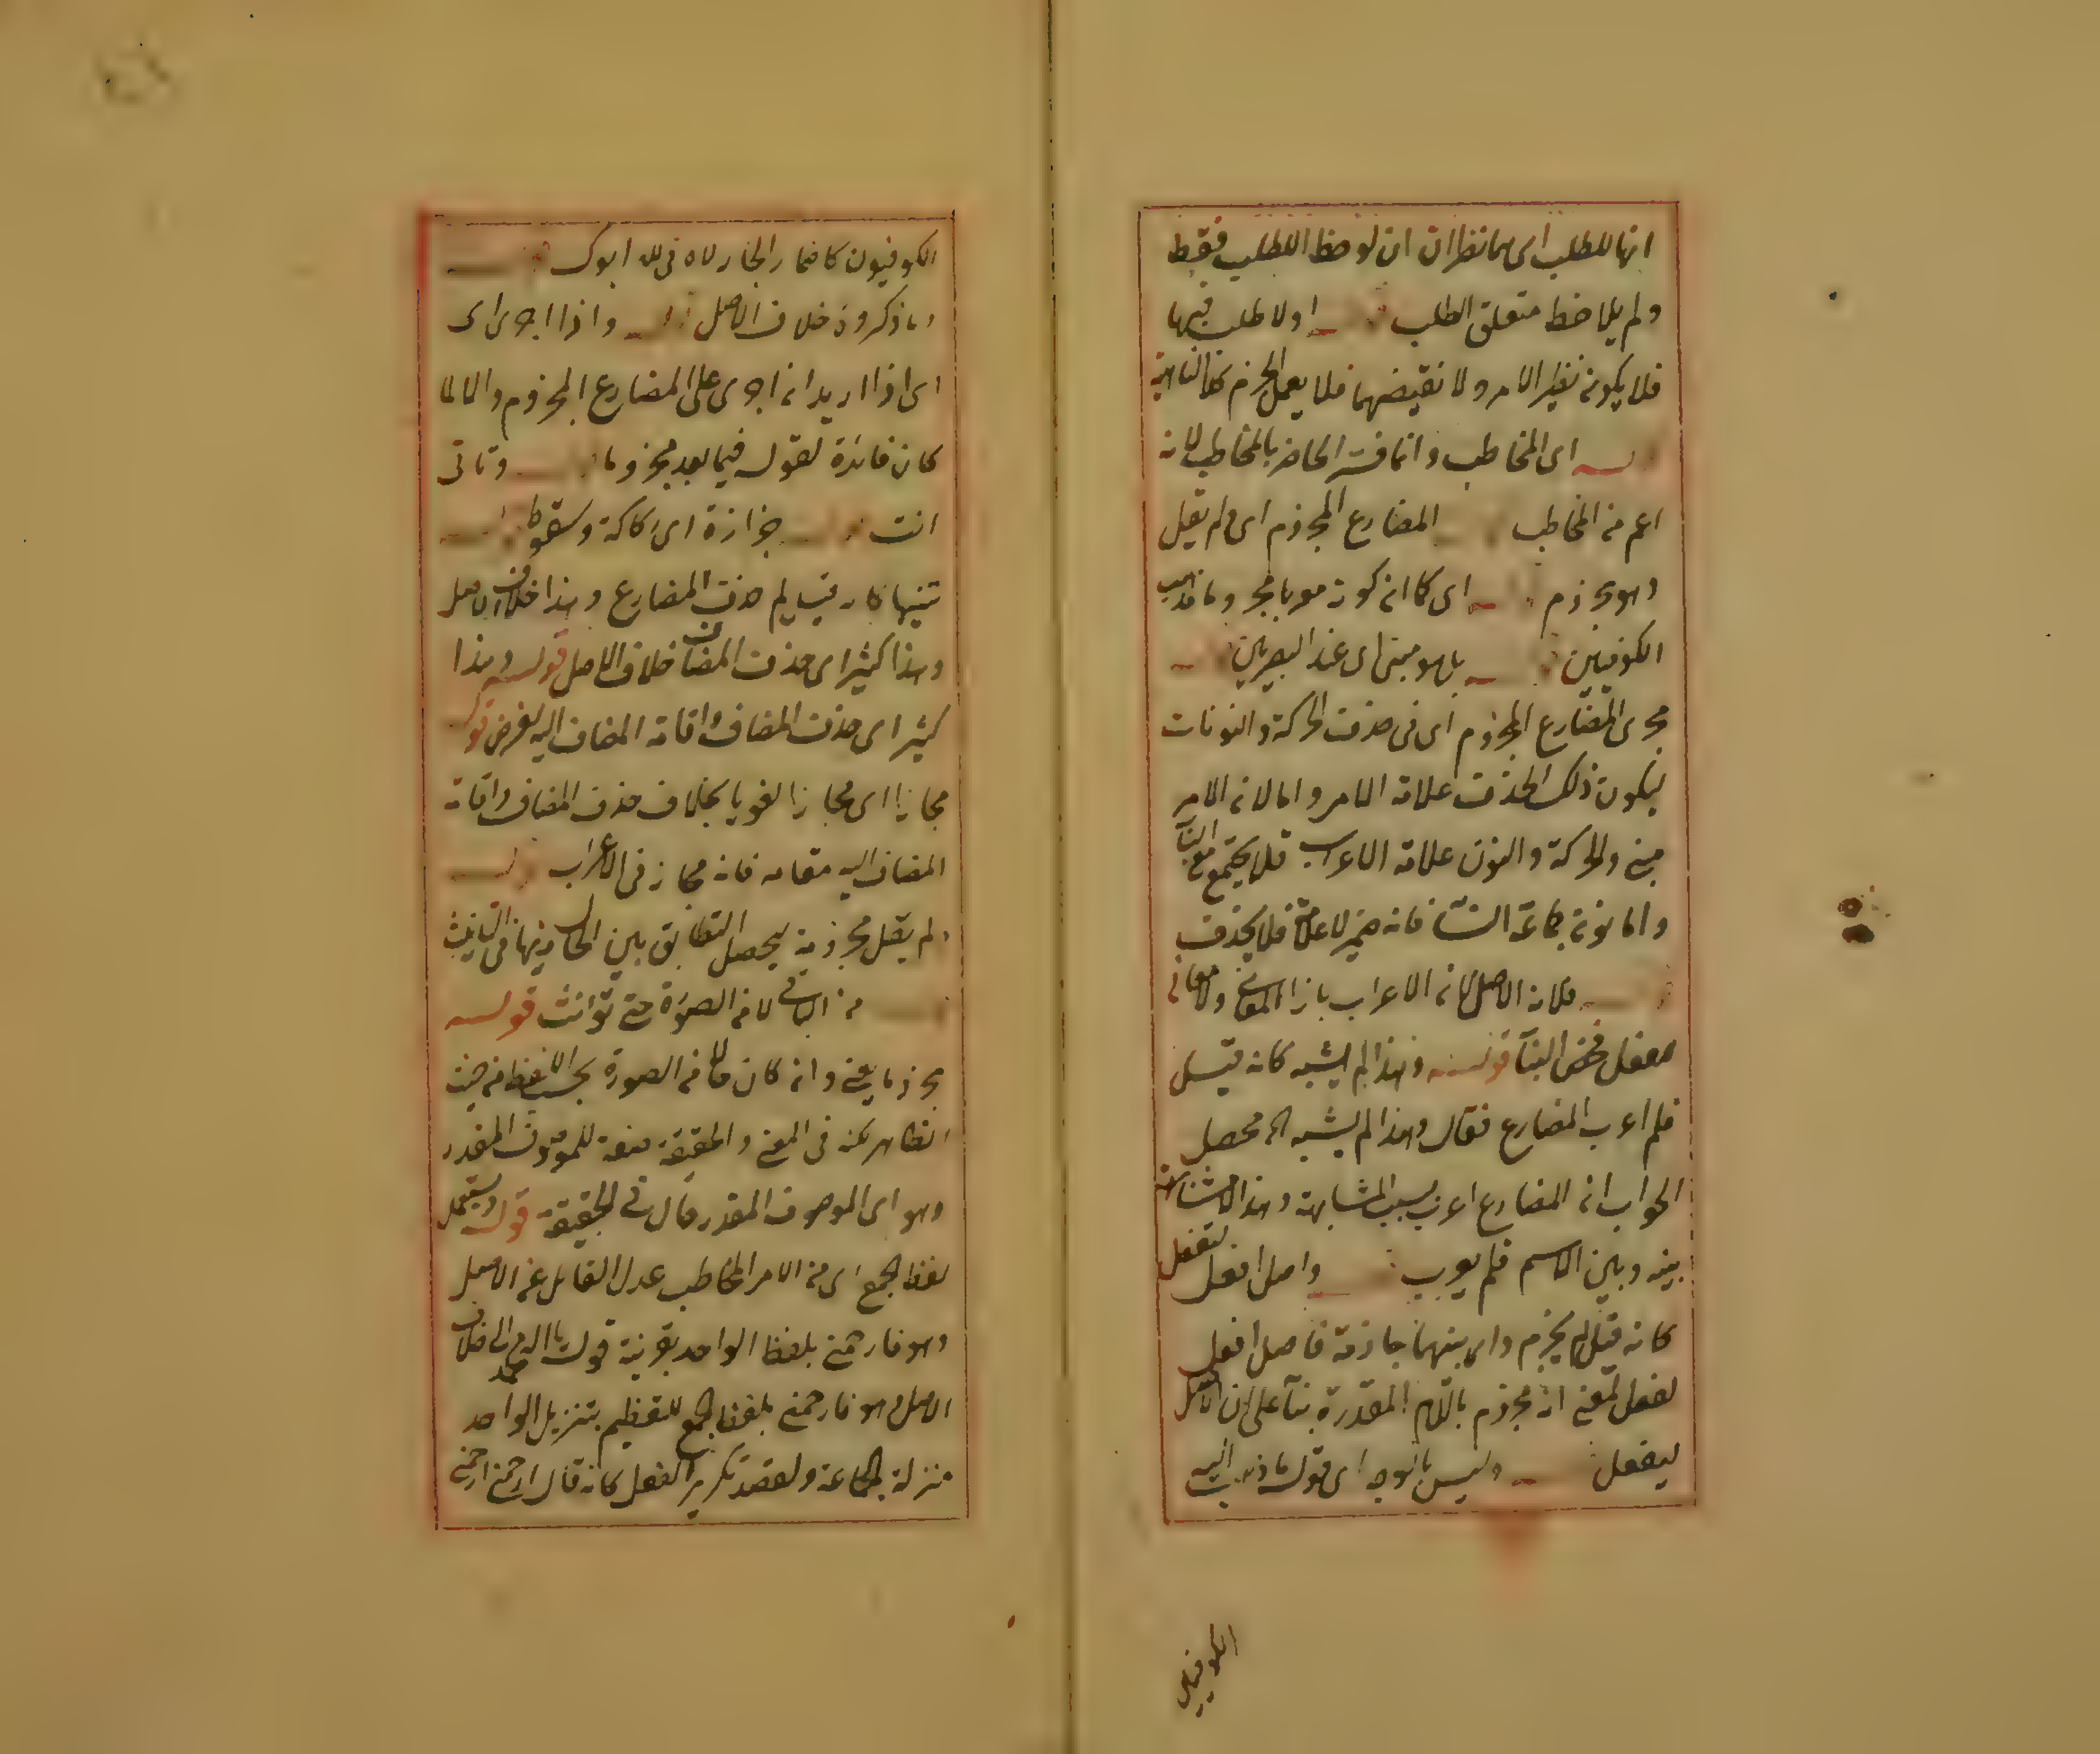 انها للطلب اى هما نظران ان لوحظ الطلب فقط
ولم يلاحظ متعلق الطلب اولا طلب فيها
فلا يكون نظير الامر ولا نقيضهما فلا يعمل الجزم كلا النافية
اى المخاطب وانما فسر الحاضر بالمخاطب لانه
اعم من المخاطب المضارع المجزوم اى ولم يقل
وهو مجزوم اى كما انه كونه معربا مجزوما مذهب
الكوفيين بل هو مبنى اى عند البصريين
مجرى المضارع المجزوم اى فى حذف الحركة والنونات
ليكون ذلك الحذف علامة الامر واما لانه الامر
مبنى والحركة والنون علامة الاعراب فلا يجتمع مع البنآ
واما نون جماعة النسآ فانه ضمير لا علامة فلا يحذف
فلان الاصل لانه الاعراب بازا المعانى ولا معانى
للفعل فحقه البنآ قوله وهذا لم يشبه كانه قيل
فلم اعرب المضارع فقال وهذا لم يشبه الخ محصل
الجواب انه المضارع اعرب بسبب المشابهة وهذا لا مشابهة
بينه وبين الاسم فلم يعرب واصل افعل لتفعل
كانه قيل لم يجزم وليس منهما جازمة فاصل افعل
لتفعل بمعنى انه مجزوم باللام المقدرة بنآ على ان الاصل
ليفعل وليس بالوجه اى قوله ما ذهب اليه
الكوفيين
الكوفيون كاضمار الجار لاه فى لله ابوك
وما ذكروه خلاف الاصل واذا اجرى اى
اى اذا اريد انه اجرى على المضارع المجزوم والا لما
كان فائدة لقوله فيما بعد مجزوما وتاتى
انت جزازة اى ركاكة وسقوط
وهذا كثير اى حذف المضاف خلاف الاصل قوله وهذا
كثير اى حذف المضاف واقامة المضاف اليه لغرض قوله
مجازا اى مجازا لغويا بخلاف حذف المضاف واقامة
المضاف اليه مقامه فانه مجاز فى الاعراب
ولم يقل مجزومة ليحصل التطابق بين الحال وذيها فى التانيث
من الثانى لا من الصورة حتى تؤانث قوله
مجزوما يعنى وانه كان حالا من الصورة بحسب اللفظ من حيث
الظاهر لكنه فى المعنى والحقيقة صفة للموصوف المقدر
وهو اى الموصوف المقدر حال فى الحقيقة قوله ويستعمل
لفظ الجمع اى من الامر المخاطب عدل القائل عن الاصل
وهو فارحمنى بلفظ الواحد بقرينة قوله يا اله محمد الى خلاف
الاصل وهو فارحمونى بلفظ الجمع للتعظيم بتنزيل الواحد
منزلة الجماعة ولقصد تكرير الفعل كانه قال ارحمنى ارحمنى